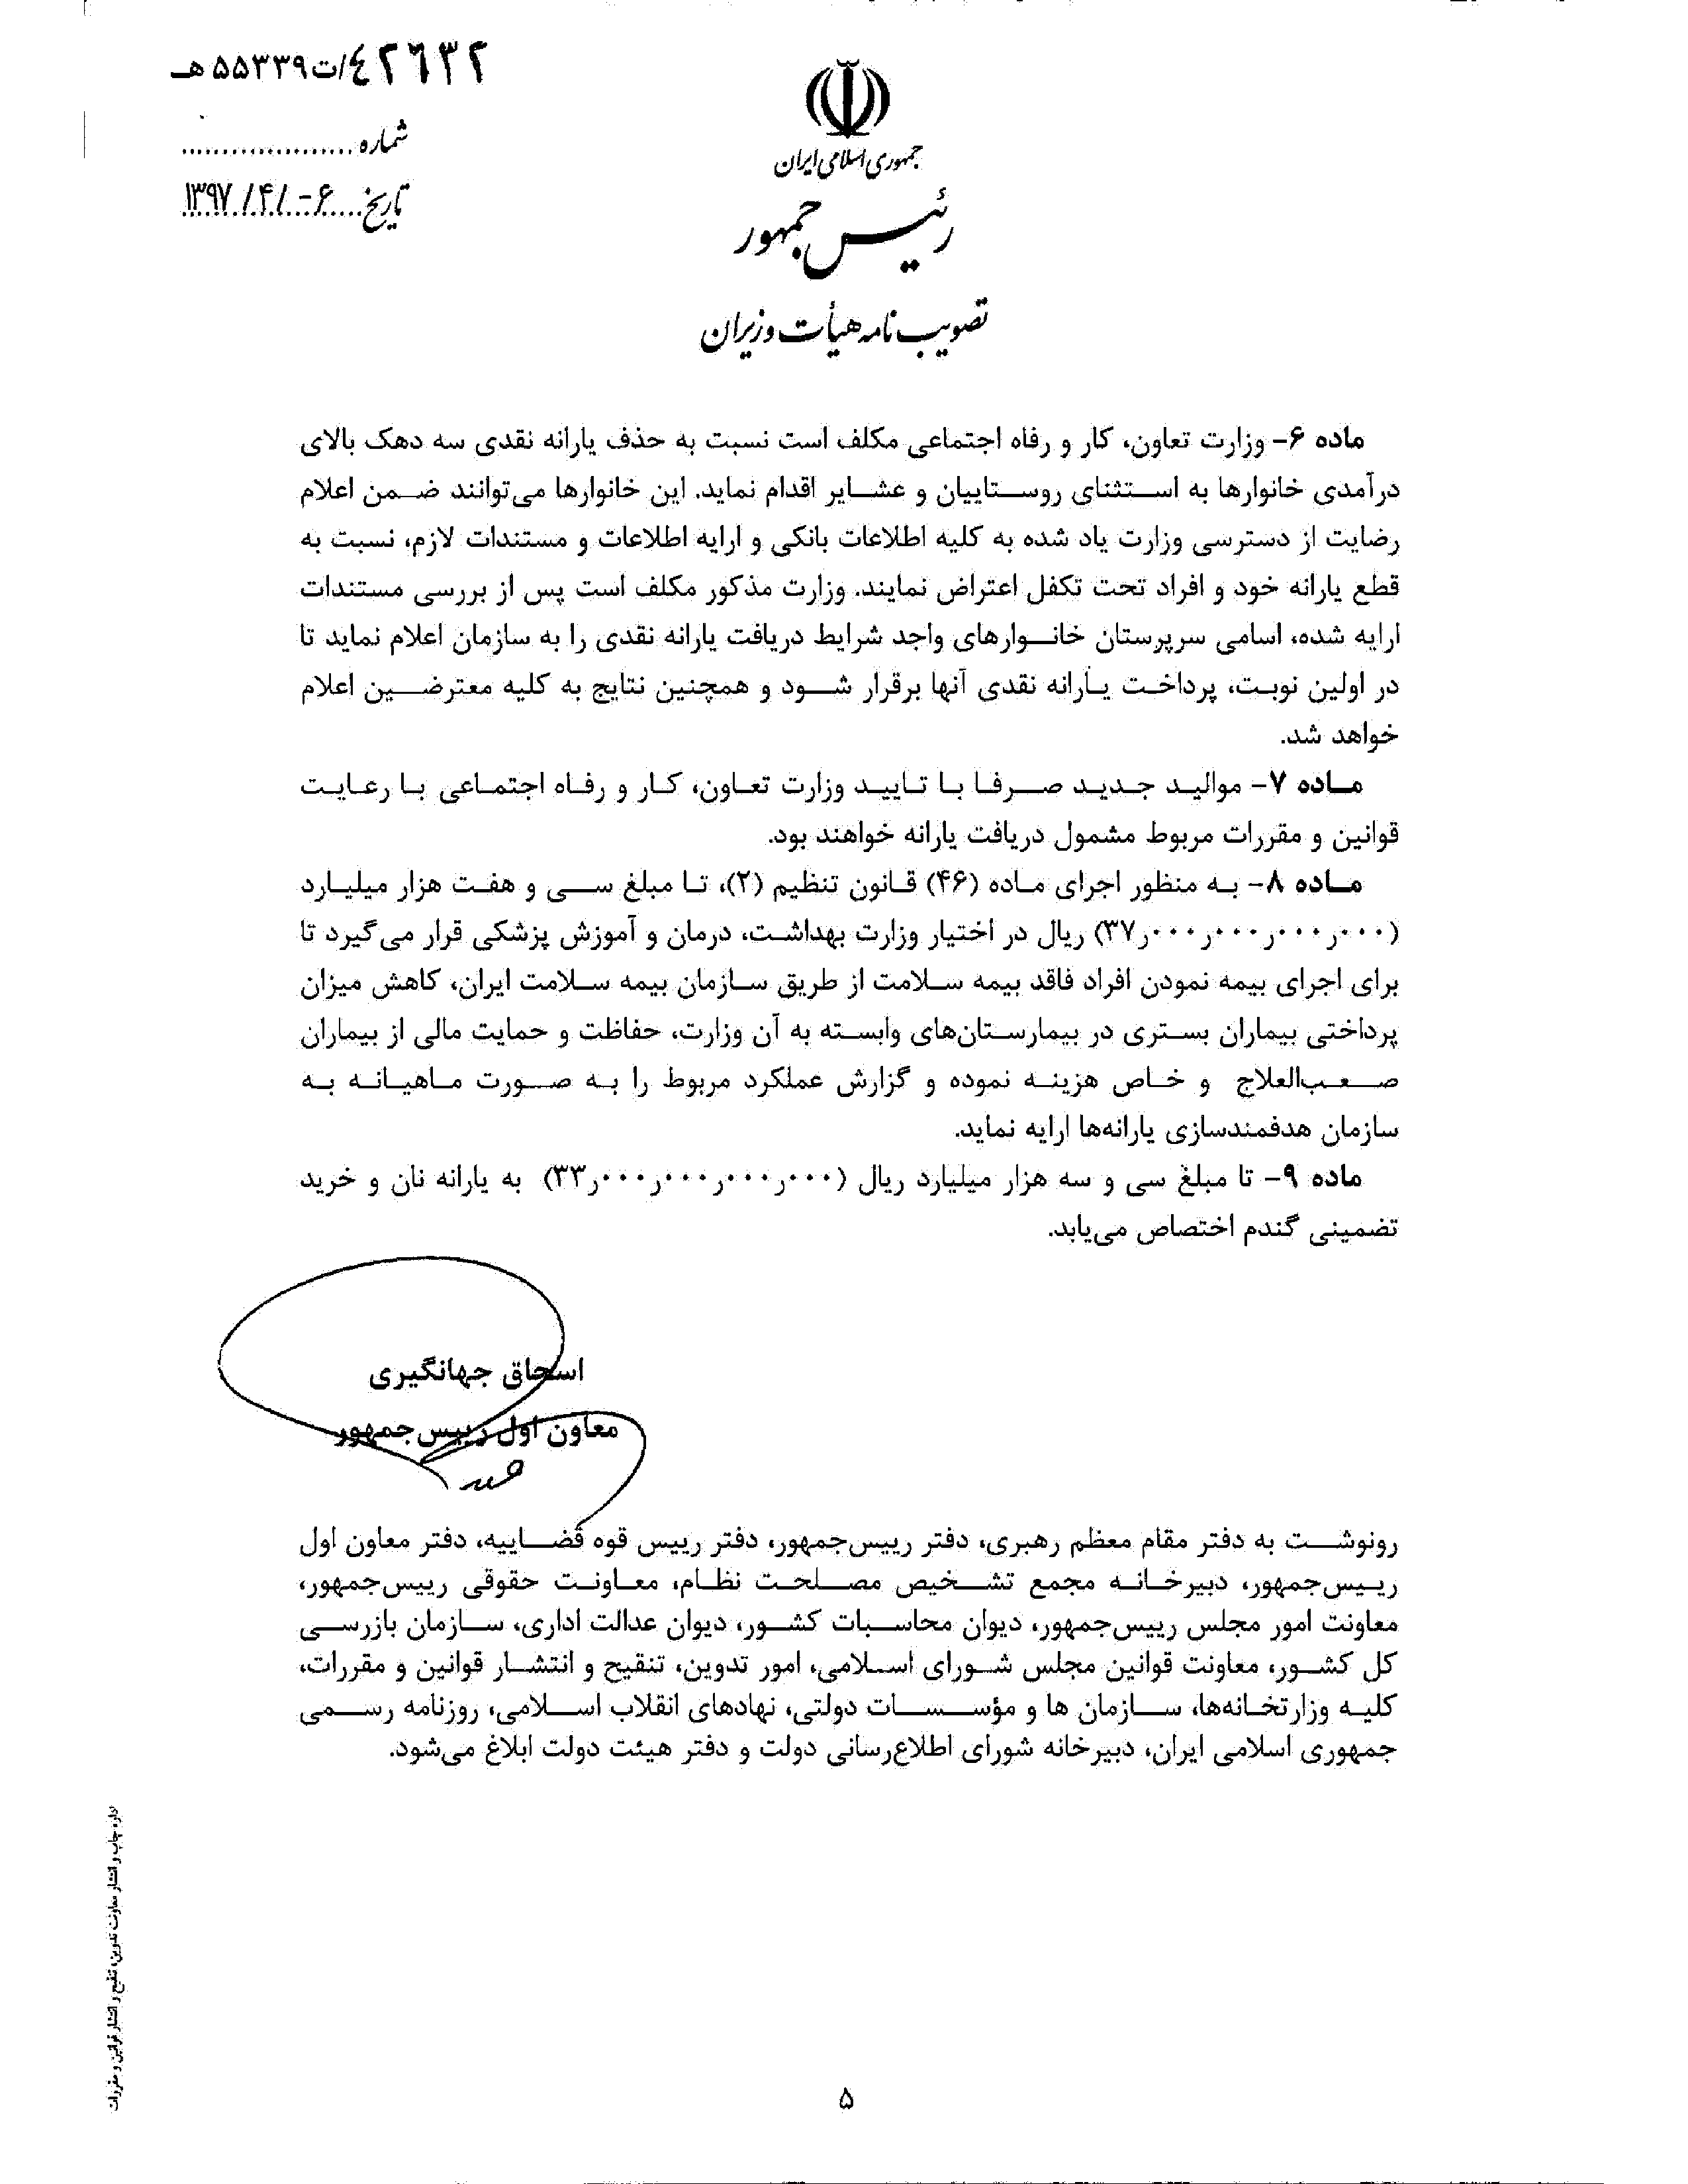 ۴۲۶۳۲/ت۵۵۳۳۹هـ
شماره ....................
تاریخ....۶-/۴/ ۱۳۹۷
جمهوری اسلامی ایران
رئیس جمهور
تصویب نامه هیأت وزیران
ماده ۶- وزارت تعاون، کار و رفاه اجتماعی مکلف است نسبت به حذف یارانه نقدی سه دهک بالای
درآمدی خانوارها به استثنای روستاییان و عشایر اقدام نماید. این خانوارها می‌توانند ضمن اعلام
رضایت از دسترسی وزارت یاد شده به کلیه اطلاعات بانکی و ارایه اطلاعات و مستندات لازم، نسبت به
قطع یارانه خود و افراد تحت تکفل اعتراض نمایند. وزارت مذکور مکلف است پس از بررسی مستندات
ارایه شده، اسامی سرپرستان خانوارهای واجد شرایط دریافت یارانه نقدی را به سازمان اعلام نماید تا
در اولین نوبت، پرداخت یارانه نقدی آنها برقرار شود و همچنین نتایج به کلیه معترضین اعلام
خواهد شد.
ماده ۷- موالید جدید صرفا با تایید وزارت تعاون، کار و رفاه اجتماعی با رعایت
قوانین و مقررات مربوط مشمول دریافت یارانه خواهند بود.
ماده ۸- به منظور اجرای ماده (۴۶) قانون تنظیم (۲)، تا مبلغ سی و هفت هزار میلیارد
(۳۷ر۰۰۰ر۰۰۰ر۰۰۰ر۰۰۰) ریال در اختیار وزارت بهداشت، درمان و آموزش پزشکی قرار می‌گیرد تا
برای اجرای بیمه نمودن افراد فاقد بیمه سلامت از طریق سازمان بیمه سلامت ایران، کاهش میزان
پرداختی بیماران بستری در بیمارستان‌های وابسته به آن وزارت، حفاظت و حمایت مالی از بیماران
صعب‌العلاج و خاص هزینه نموده و گزارش عملکرد مربوط را به صورت ماهیانه به
سازمان هدفمندسازی یارانه‌ها ارایه نماید.
ماده ۹- تا مبلغ سی و سه هزار میلیارد ریال (۳۳ر۰۰۰ر۰۰۰ر۰۰۰ر۰۰۰) به یارانه نان و خرید
تضمینی گندم اختصاص می‌یابد.
اسحاق جهانگیری
معاون اول رییس‌جمهور
رونوشت به دفتر مقام معظم رهبری، دفتر رییس‌جمهور، دفتر رییس قوه قضاییه، دفتر معاون اول
رییس‌جمهور، دبیرخانه مجمع تشخیص مصلحت نظام، معاونت حقوقی رییس‌جمهور،
معاونت امور مجلس رییس‌جمهور، دیوان محاسبات کشور، دیوان عدالت اداری، سازمان بازرسی
کل کشور، معاونت قوانین مجلس شورای اسلامی، امور تدوین، تنقیح و انتشار قوانین و مقررات،
کلیه وزارتخانه‌ها، سازمان ها و مؤسسات دولتی، نهادهای انقلاب اسلامی، روزنامه رسمی
جمهوری اسلامی ایران، دبیرخانه شورای اطلاع‌رسانی دولت و دفتر هیئت دولت ابلاغ می‌شود.
اداره چاپ و انتشار معاونت تدوین، تنقیح و انتشار قوانین و مقررات
۵